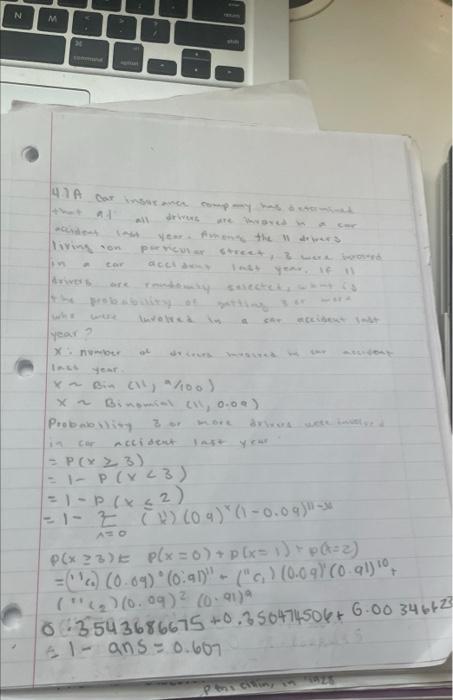 N M
command option
return
shift
4.) A car insurance company has determined
that 9% all drivers are invoved in a car
accident last year. Among the 11 drivers
living on particular street, 3 were invoved
in a car accident last year. If 11
drivers are randomly selected, what is
the probability of getting 3 or more
who were involved in a car accident last
year?
X: number of drivers invoved in car accident
last year.
X ~ Bin (11, 9/100)
X ~ Binomial (11, 0.09)
Probability 3 or more drivers were involved
in car accident last year
= P(X ≥ 3)
= 1 - P(X < 3)
= 1 - P(X ≤ 2)
= 1 - Σ (0.9)ˣ (1-0.09)¹¹⁻ˣ
x=0
P(X ≥ 3) = P(X=0) + P(X=1) + P(X=2)
= (¹¹C₀) (0.09)⁰ (0.91)¹¹ + (¹¹C₁) (0.09)¹ (0.91)¹⁰ +
(¹¹C₂) (0.09)² (0.91)⁹
0.3543686675 + 0.350474506 +
= 1 - ans = 0.607
in 1928